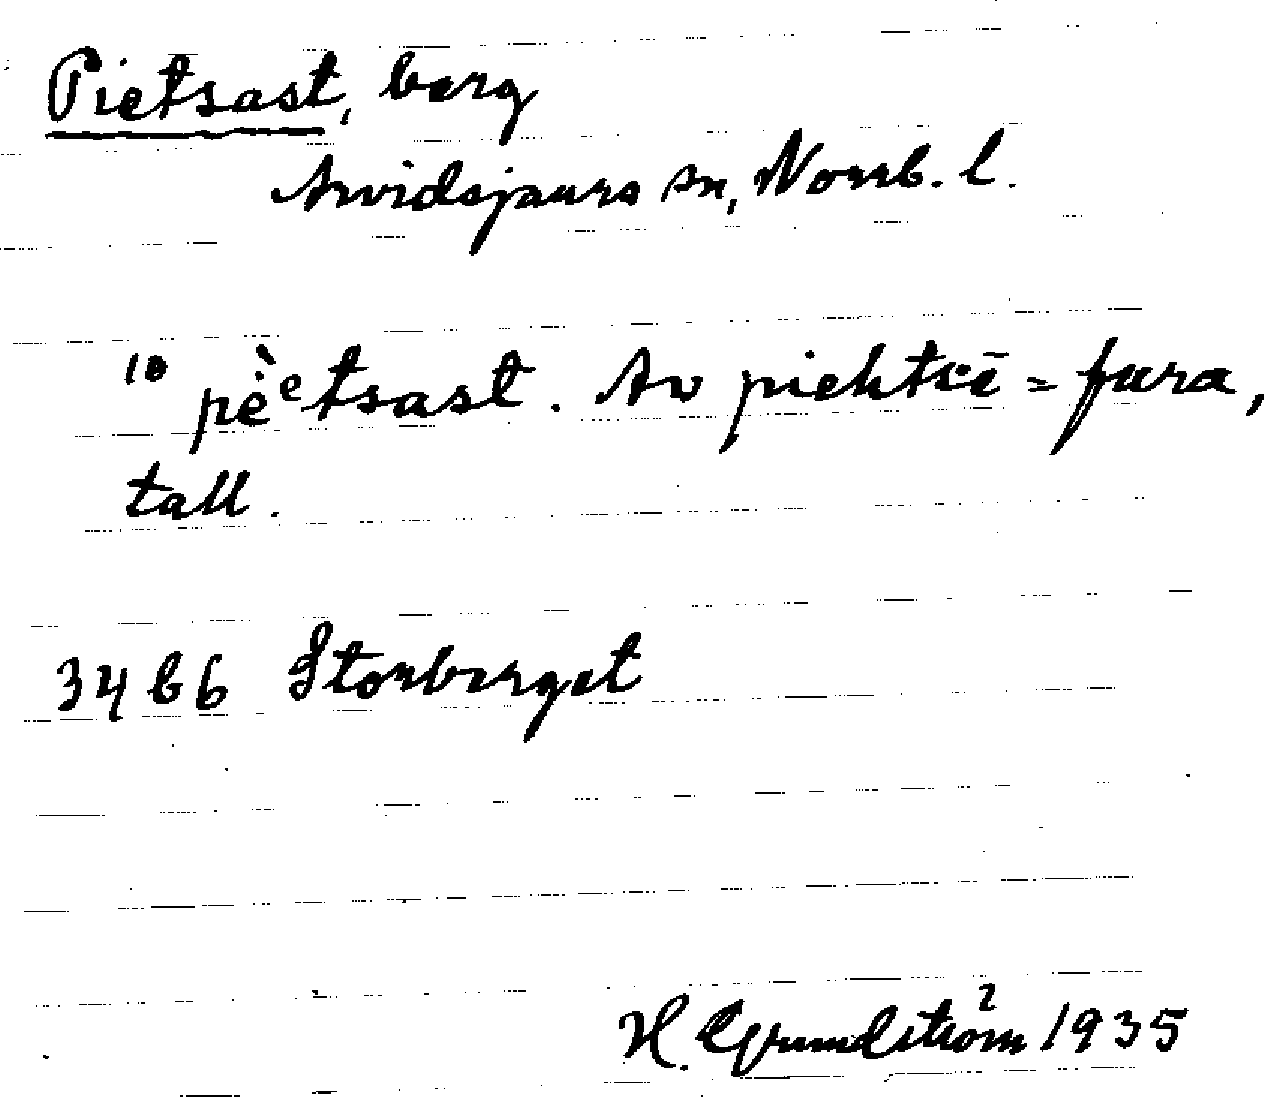 Pietsast, berg
Arvidsjaurs sn, Norrb. l.
10 pèᵉtsast. Av piehtsē = fura,
tall.
34 b 6 Storberget
H. Grundström 1935